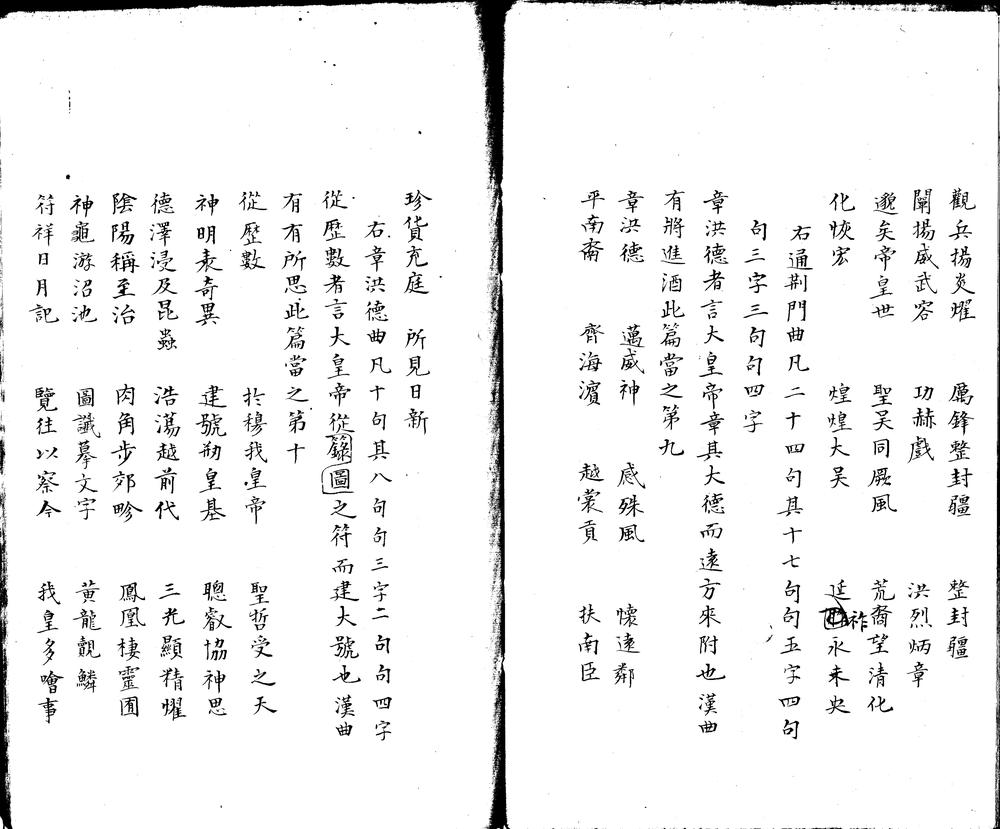 觀兵揚炎耀　厲鋒整封疆　整封疆
闡揚威武容　功赫戲　洪烈炳章
邈矣帝皇世　聖吳同厥風　荒裔望清化
化恢宏　煌煌大吴　延祚永未央
右通荆門曲凡二十四句其十七句句五字四句
句三字三句句四字
章洪德者言大皇帝章其大德而遠方來附也漢曲
有將進酒此篇當之第九
章洪德　邁威神　感殊風　懷遠鄰
平南裔　齊海濱　越裳貢　扶南臣
珍貨充庭　所見日新
右章洪德曲凡十句其八句句三字二句句四字
從歷數者言大皇帝從籙圖之符而建大號也漢曲
有有所思此篇當之第十
從歷數　於穆我皇帝　聖哲受之天
神明表奇異　建號剏皇基　聰叡協神思
德澤浸及昆蟲　浩蕩越前代　三光顯精燿
陰陽稱至治　肉角步郊畛　鳳凰棲靈囿
神龜游沼池　圖讖摹文字　黃龍覿鱗
符祥日月記　覽往以察今　我皇多噲事